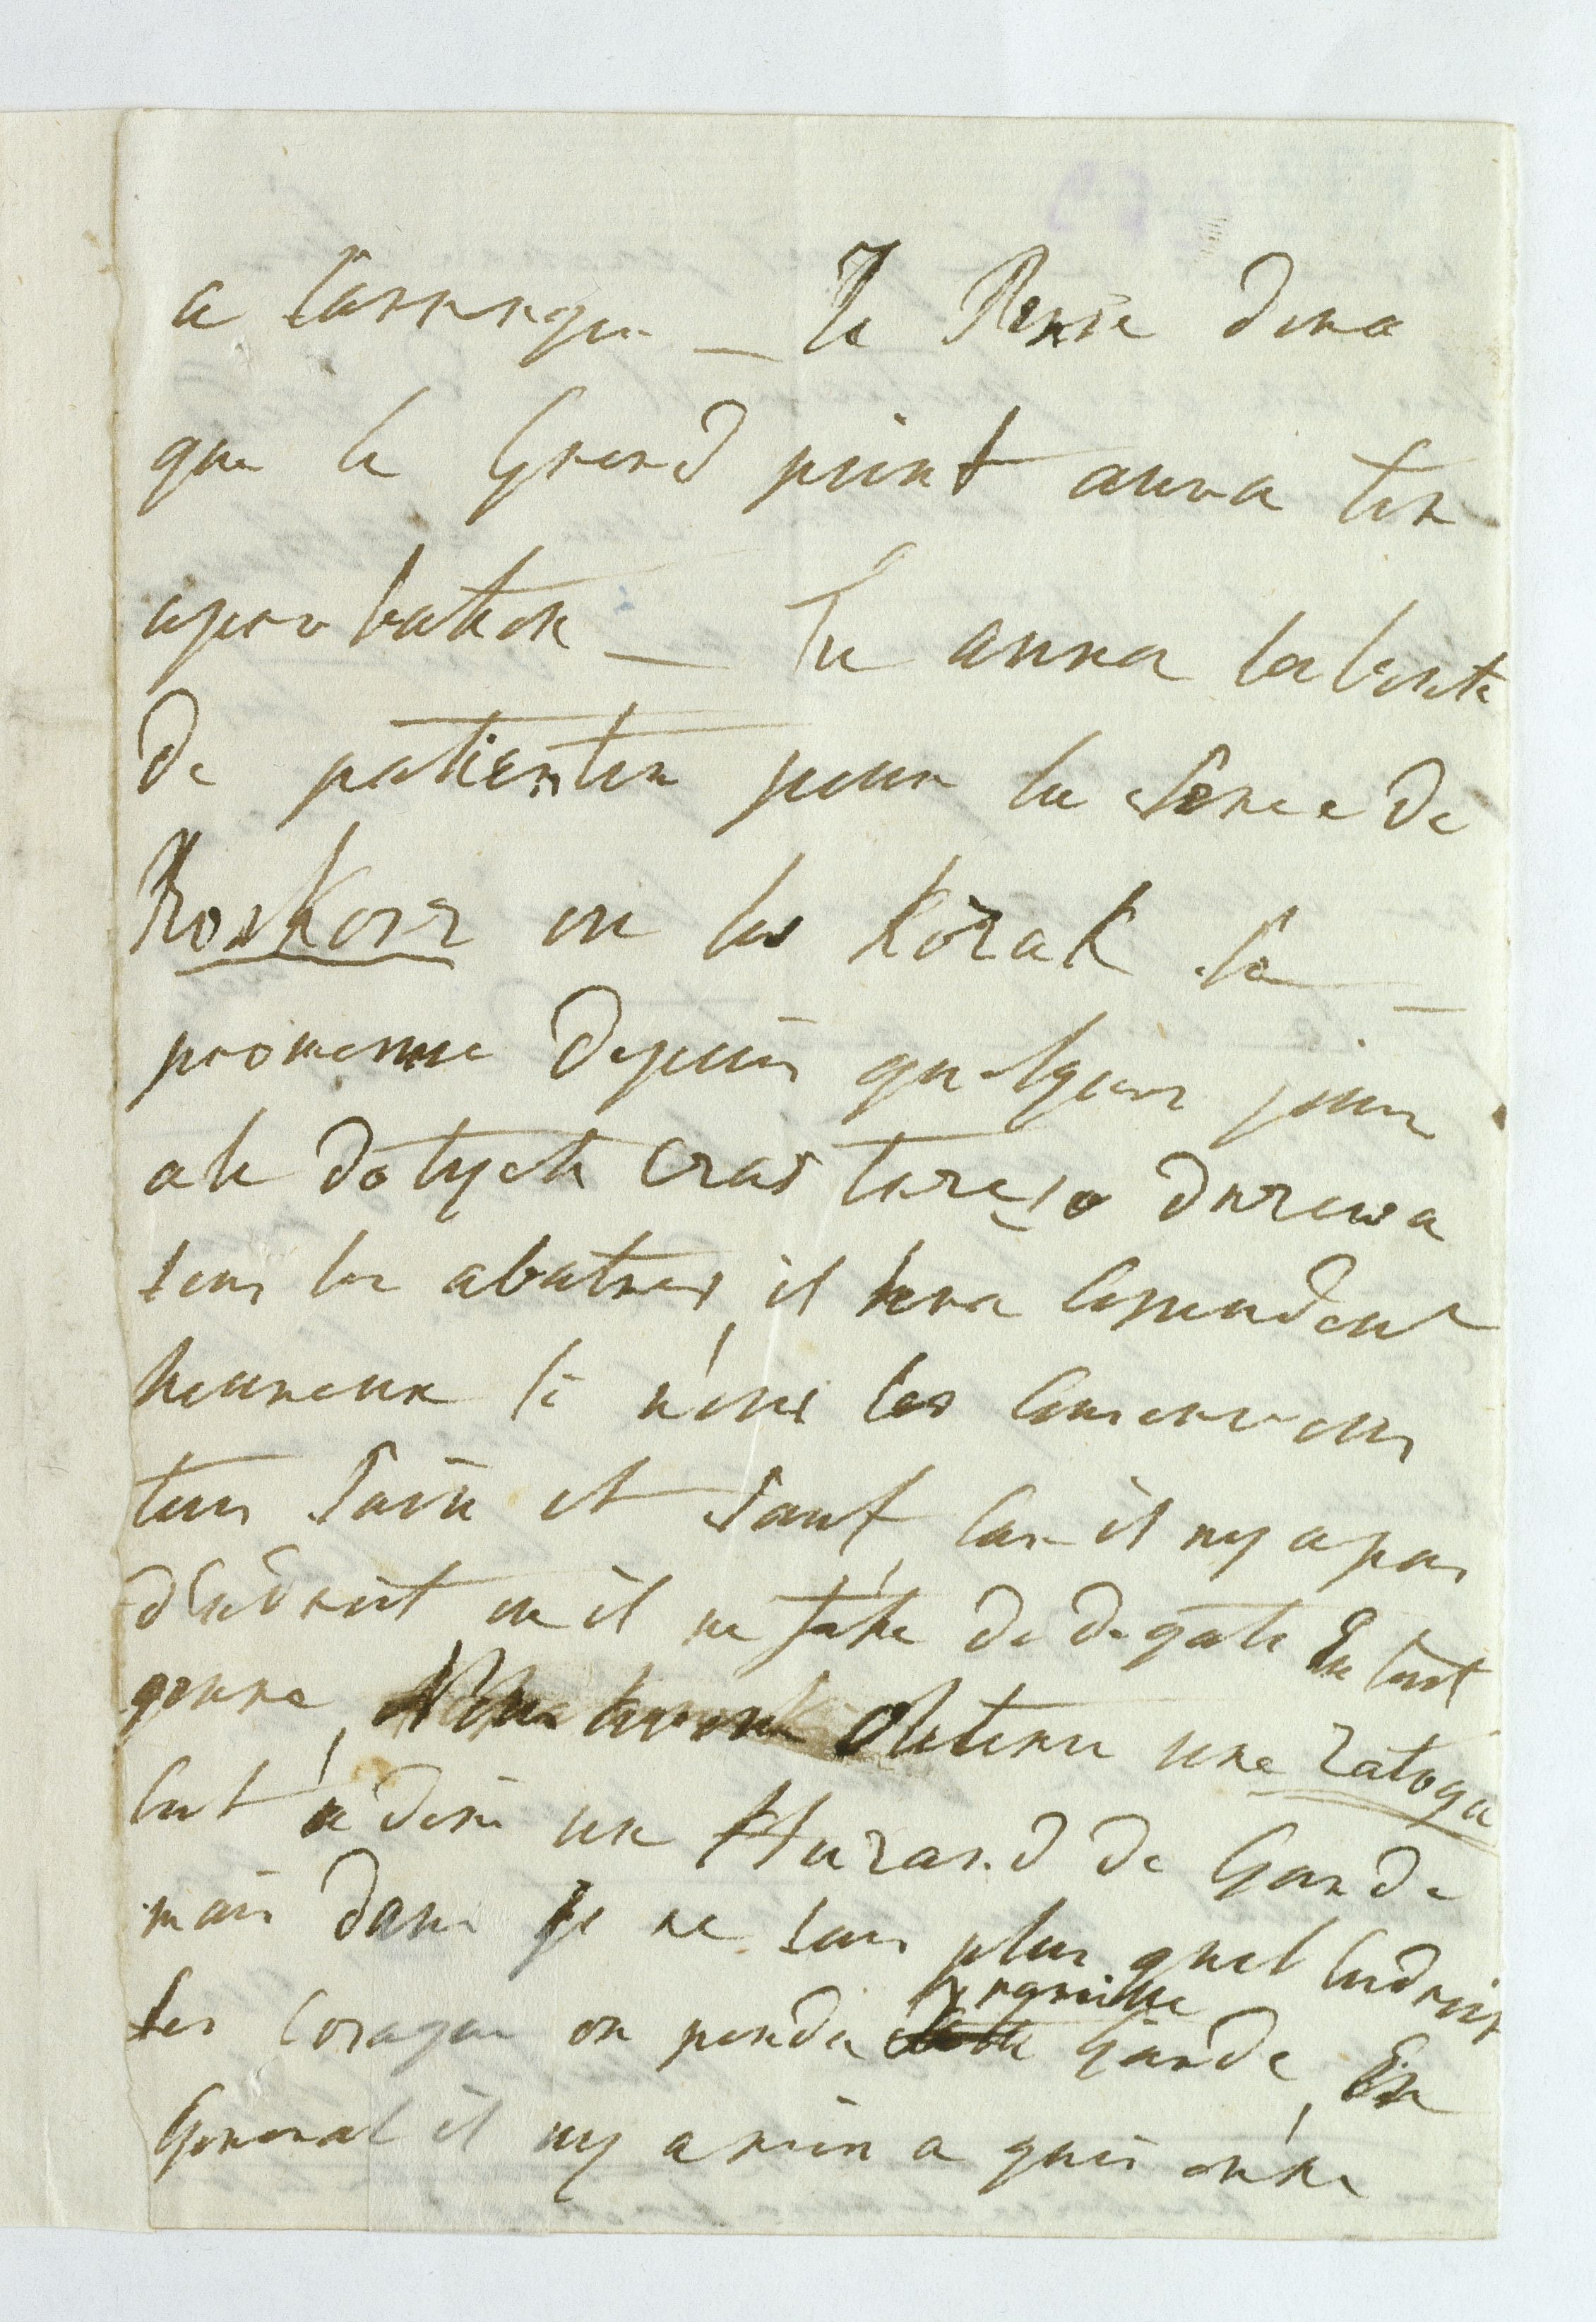 a l'arrange — Je Pense donc
que le Grand point aura ton
aprobation — Tu auras la bonté
de patienter pour la Scene de
Roskosz ou les Kozak se
promenne depuis quelques jours
ale dotych czas tnze drzewa
sans les abatres, il sera Cependent
heureux si nous les Conservons
tous Sain et Sauf, Car il ny a pas
d'endroit ou il ne fasse de degats En tout
genre, obtenu une zaloga
C'est a dire un Huzard de Garde
mais dans je ne sais plus quel endroit
les Cosaque on pendu garde, En
General il ny a rien a quoi on ne